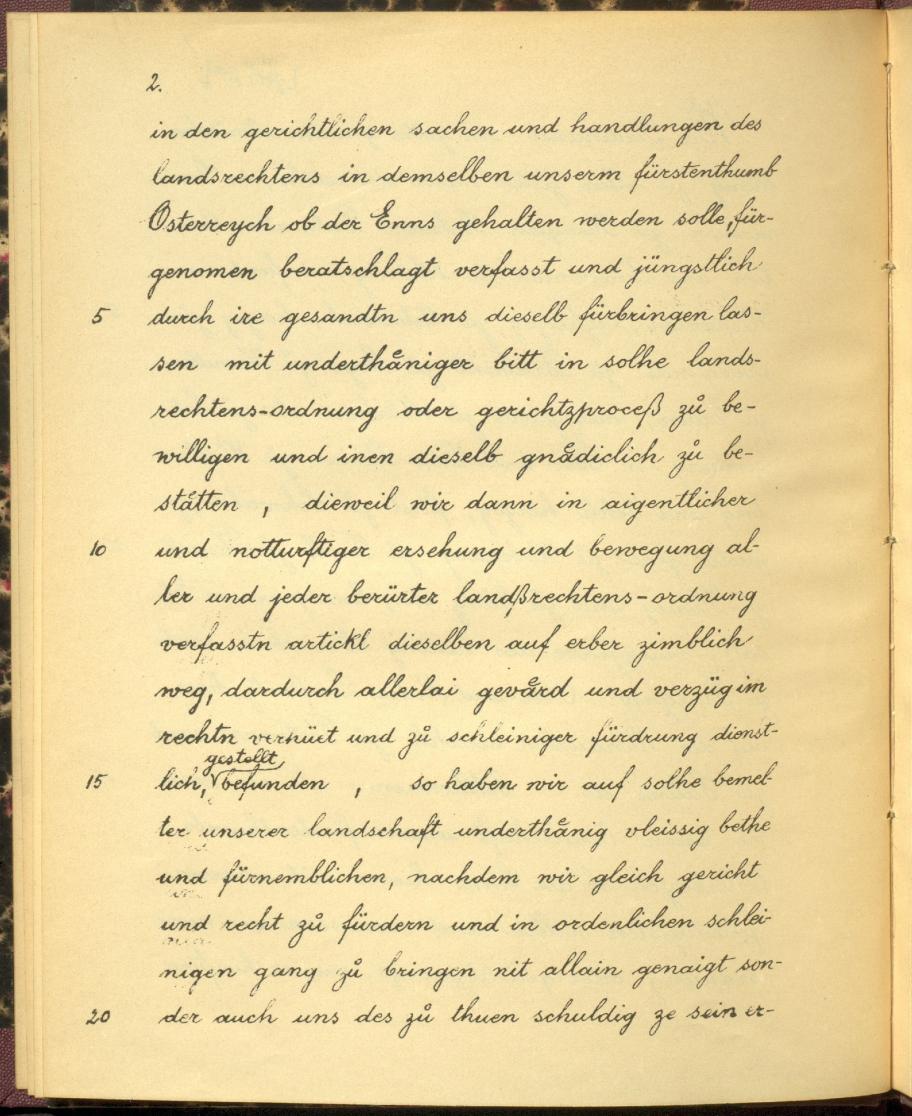 2.
in den gerichtlichen sachen und handlungen des
landsrechtens in demselben unserm fürstenthumb
Österreych ob der Enns gehalten werden solle, für-
genomen beratschlagt verfasst und jüngstlich
5 durch ire gesandtn uns dieselb fürbringen las-
sen mit underthåniger bitt in solhe lands-
rechtens-ordnung oder gerichtzproceß zů be-
willigen und inen dieselb gnådiclich zů be-
ståtten , dieweil wir dann in aigentlicher
10 und notturftiger ersehung und bewegung al-
ler und jeder berürter landßrechtens-ordnung
verfasstn artickl dieselben auf erber zimblich
weg, dardurch allerlai gevård und verzüg im
rechtn verhüet und zů schleiniger fürdrung dienst-
gestellt
15 lich, befunden , so haben wir auf solhe bemel-
ter unserer landschaft underthånig vleissig bethe
und fürnemblichen, nachdem wir gleich gericht
und recht zů fürdern und in ordenlichen schlei-
nigen gang zů bringen nit allain genaigt son-
20 der auch uns des zů thuen schuldig ze sein er-